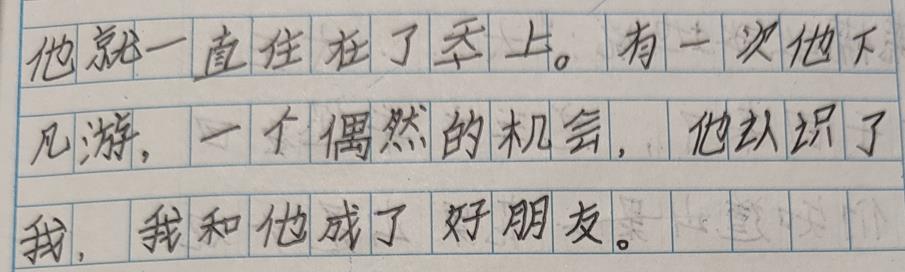 他就一直住在了天上。有一次他下
凡游，一个偶然的机会，他认识了
我，我和他成了好朋友。